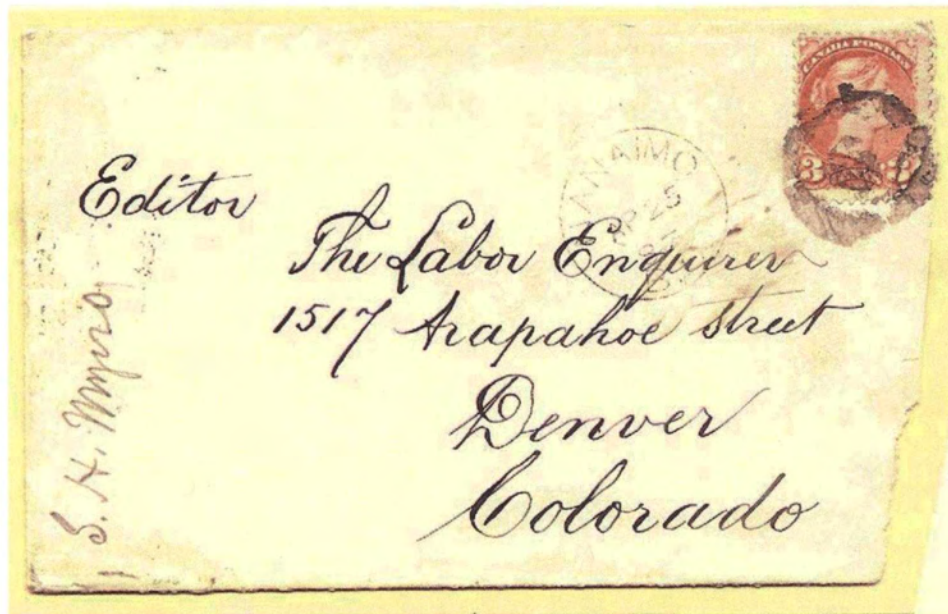 CANADA POSTAGE
3 3
NANAIMO
25
Editor
The Labor Enquirer
1517 Arapahoe street
Denver
Colorado
S. H. Myers